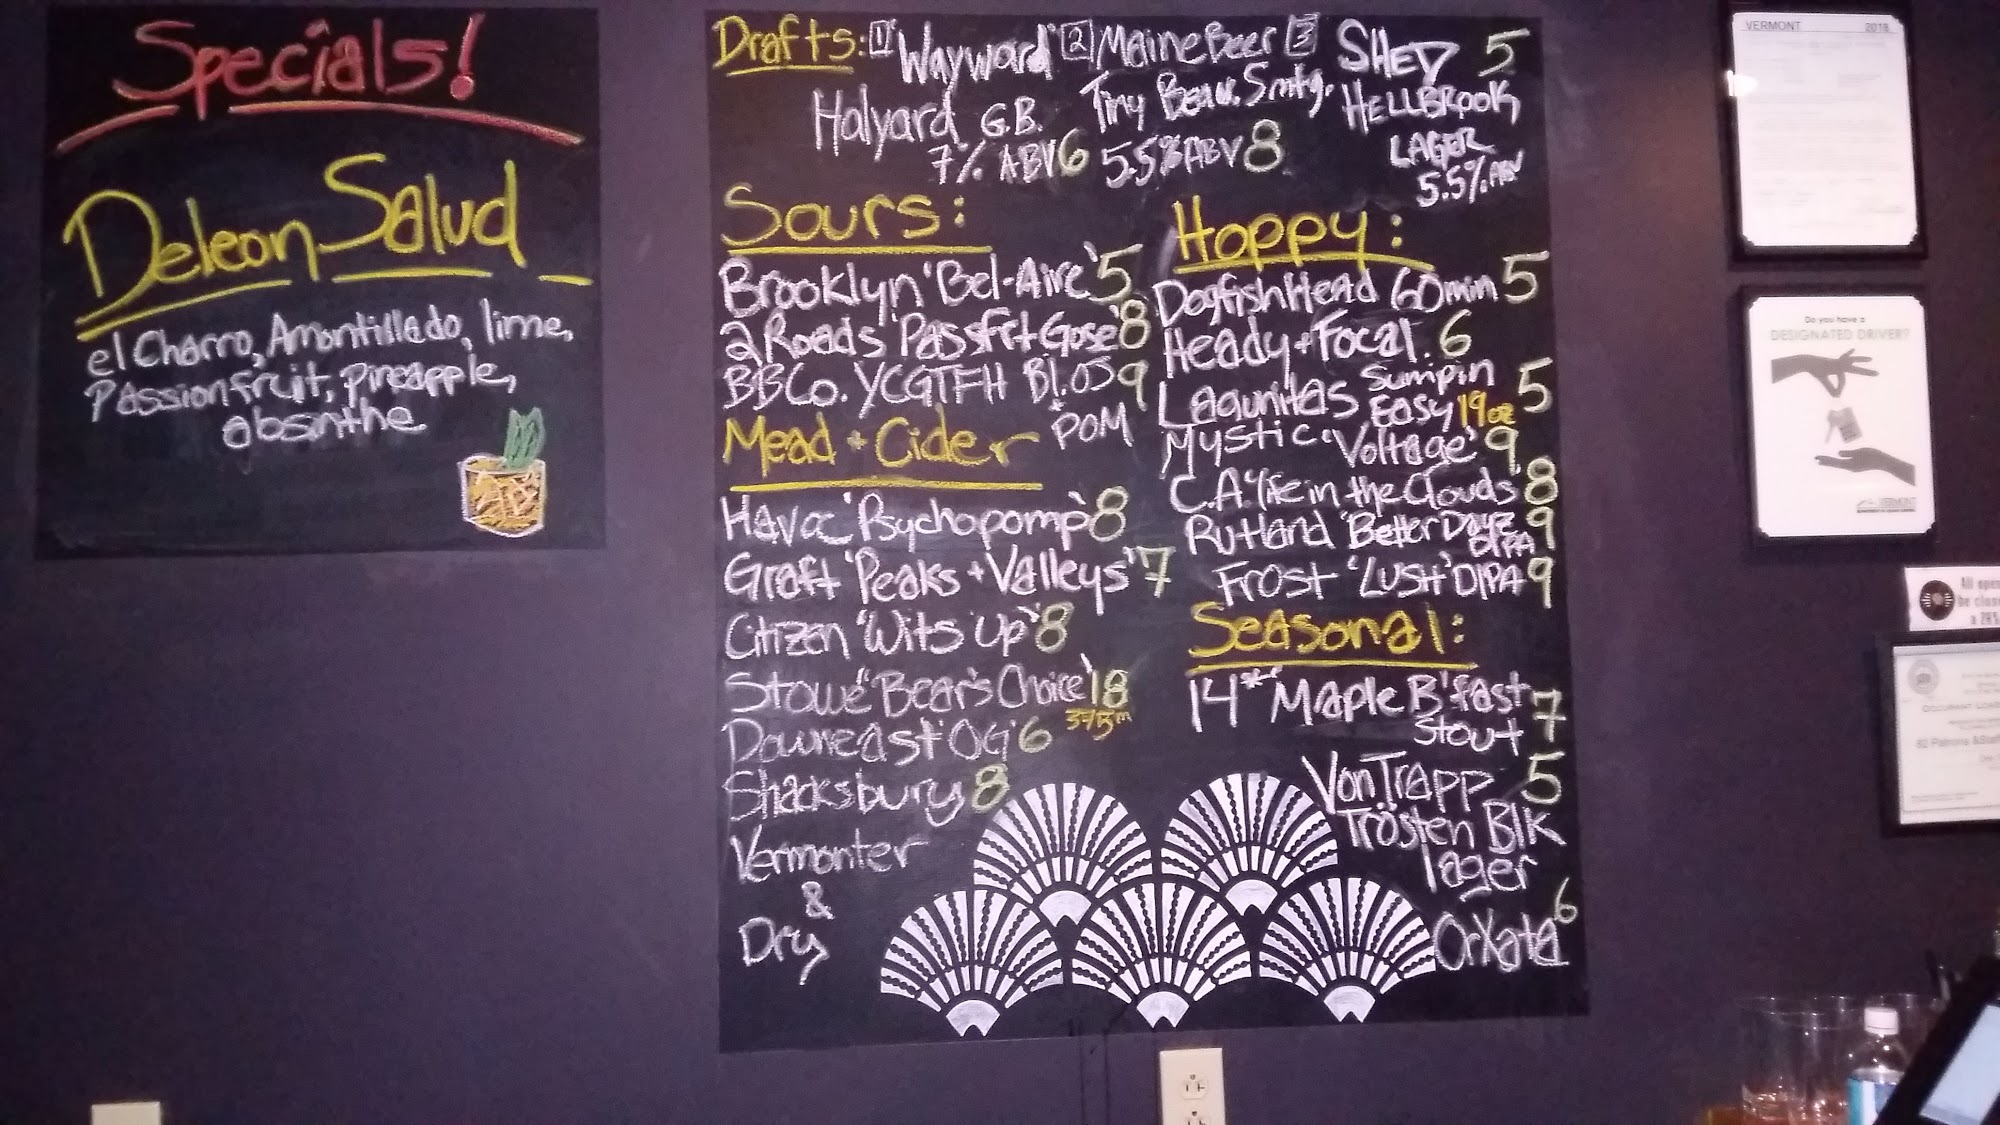 Specials!
Deleon Salud
el Charro, Amontillado, lime,
Passionfruit, pineapple,
absinthe
Drafts: 1 "Wayward" 2 Maine Beer 3 SHED 5
Halyard G.B. Tiny Beau. Smtg. HELLBROOK
7% ABV 6 5.5% ABV 8 LAGER
5.5% ABV
Sours:
Brooklyn 'Bel-Aire' 5
2 Roads 'Passfrt Gose' 8
BBCo. YCGTFH Bl.OS 9
+ POM
Mead + Cider
Havoc 'Psychopomp' 8
Graft 'Peaks + Valleys' 7
Citizen 'Wits Up' 8
Stowe 'Bear's Choice' 18
375 ml
Downeast 'OG' 6
Shacksbury 8
Vermonter
&
Dry
Hoppy:
Dogfish Head 60 min 5
Heady + Focal. 6
Lagunitas Sumpin 5
Easy 19oz
Mystic 'Voltage' 9
C.A. 'life in the Clouds' 8
Rutland 'Better Dayz 9
DIPA
Frost 'LUSH' DIPA 9
Seasonal:
14* "Maple B'fast
Stout 7
Von Trapp 5
Trösten Blk
lager
OrXata 6
VERMONT 2018
Do you have a
DESIGNATED DRIVER?
VERMONT
All open
be close
DOCUMENT
82 Patrons & Staff